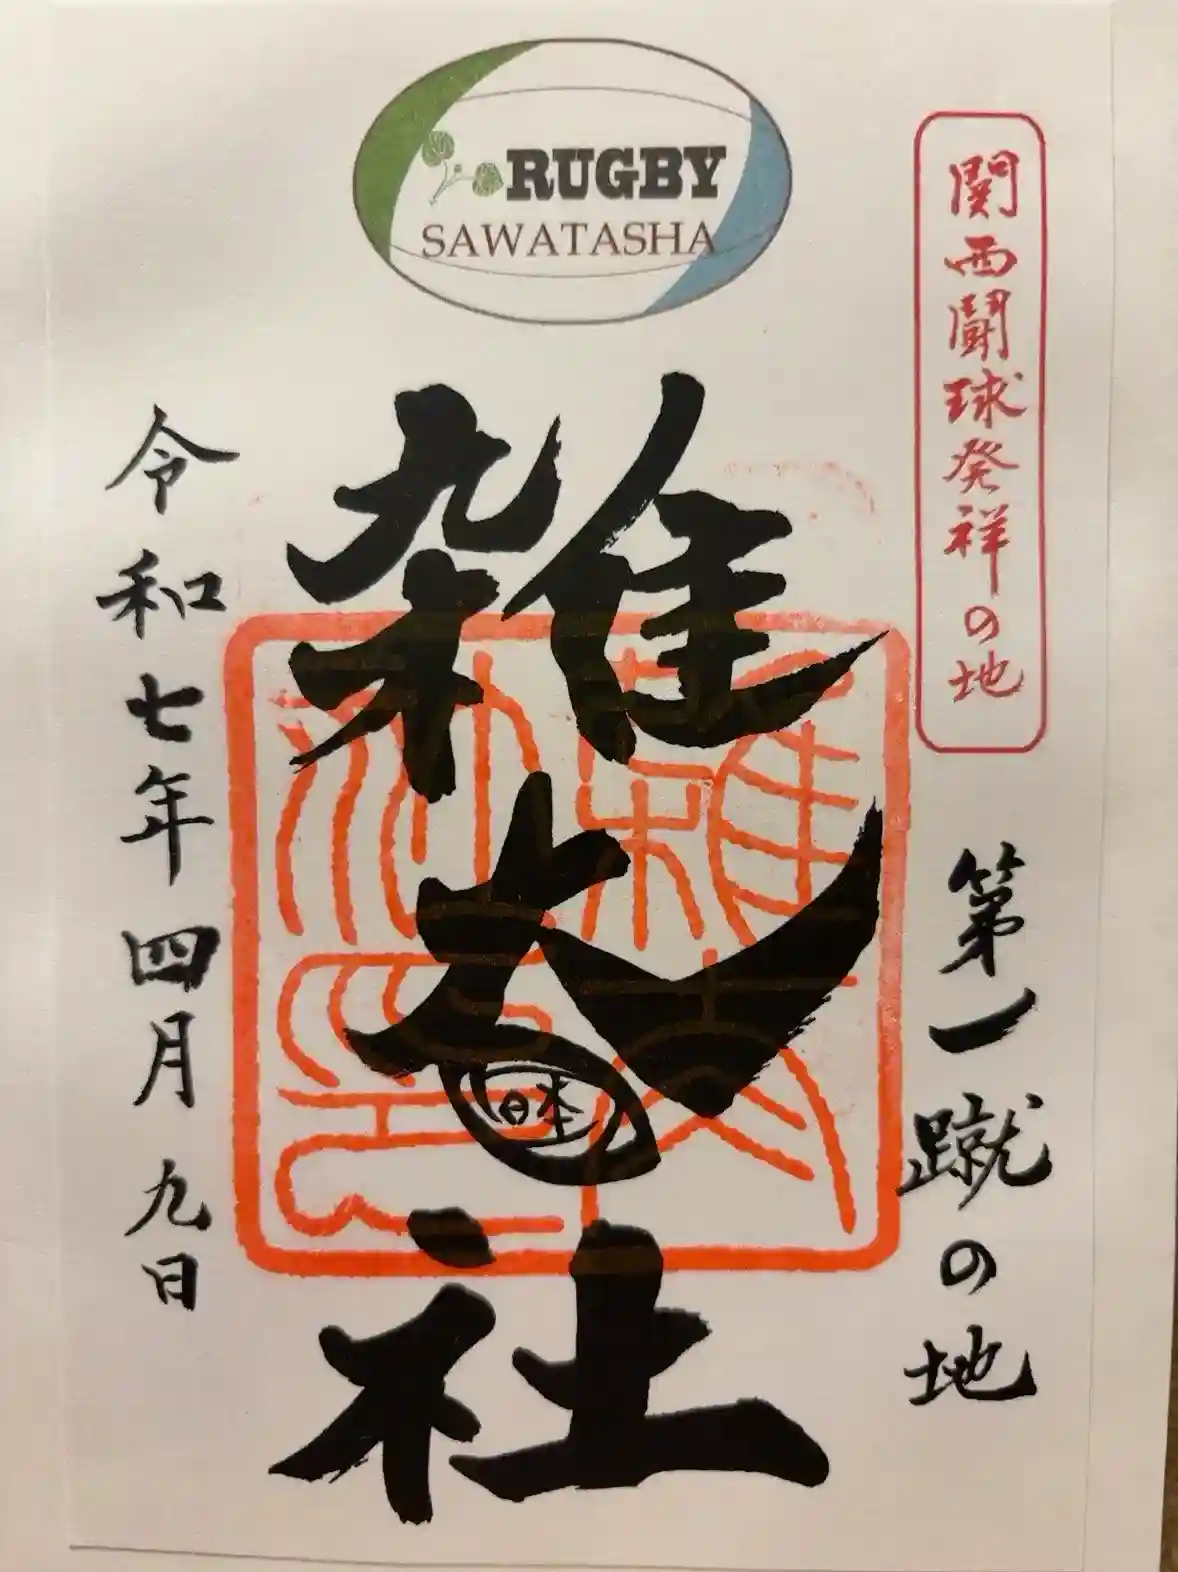 RUGBY
SAWATASHA
関西闘球発祥の地
第一蹴の地
雑太社
日本
令和七年四月九日